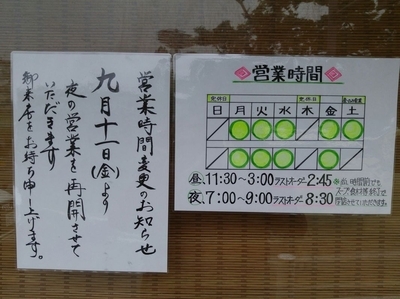 営業時間変更のお知らせ
九月十一日(金)より
夜の営業を再開させて
いただきます
御来店をお待ち申し上げます。
営業時間
定休日 定休日
日 月 火 水 木 金 土
昼、11:30~3:00 ラストオーダー 2:45
夜、7:00~9:00 ラストオーダー 8:30